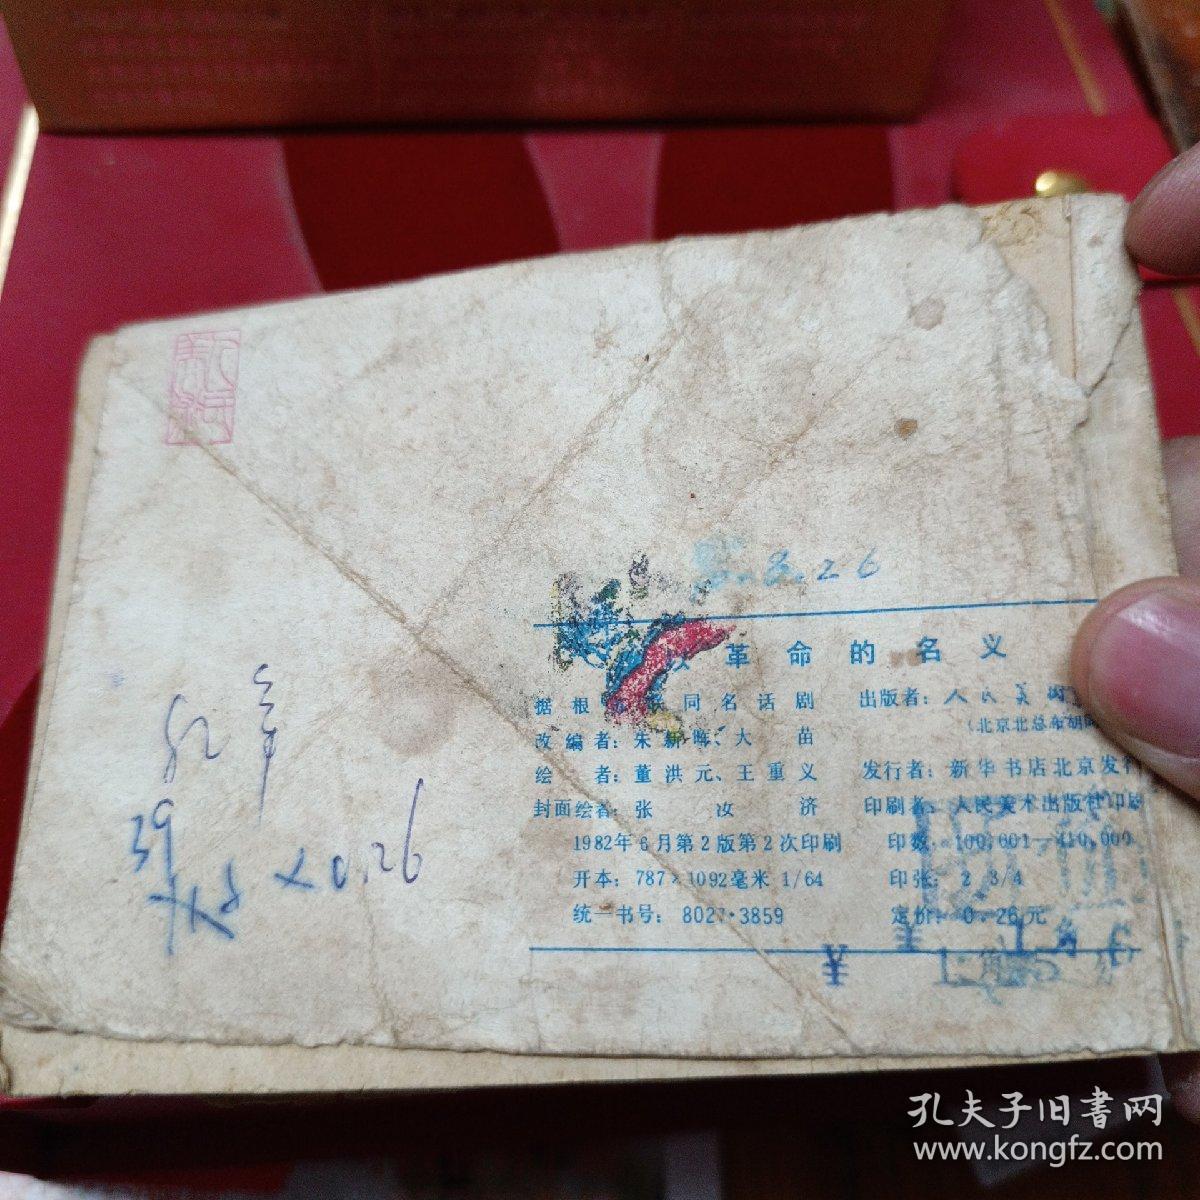 3.26
革命的名义
据根 同名话剧
出版者：人民美术
(北京北总布胡同
改编者：朱新晖、大苗
绘者：董洪元、王重义
发行者：新华书店北京发行
封面绘者：张汝济
印刷者：人民美术出版社印刷
1982年6月第2版第2次印刷
印数：100,001—410,000
开本：787×1092毫米 1/64
印张：2 3/4
统一书号：8027·3859
定价：0.26元
39
×0.26
孔夫子旧書网
www.kongfz.com